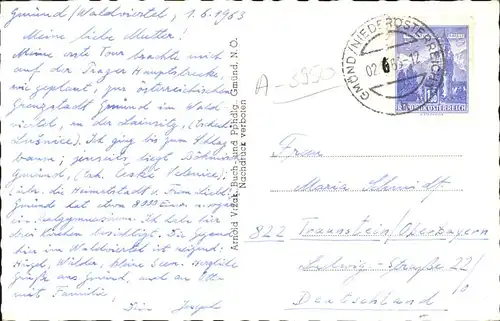 Gmünd/Waldviertel, 1.6.1963
Meine liebe Mutter!
Meine erste Tour brachte mich
auf der Prager Hauptstrecke,
wie geplant, zur österreichischen
Grenzstadt Gmünd im Wald-
viertel, an der Lainsitz, (tschech.
Lužnice). Ich ging bis zum Schlag-
baum; jenseits liegt Böhmisch
Gmünd, (tsch. České Velenice);
Gmünd hat etwa 8000 Einw. u. sogar
ein Realgymnasium. Ich habe hier
besichtigt. Die Gegend
hier im Waldviertel ist reizend:
Hügel, Wälder, kleine Seen. Herzliche
Grüße aus Gmünd, auch an Otto
mit Familie,
Dein Joseph
Arnold Vrtak, Buch- und Pphdlg., Gmünd, N. Ö.
Nachdruck verboten
A-5950
GMÜND/NIEDERÖSTERREICH
REPUBLIK ÖSTERREICH
Frau
Maria Schmidt
822 Traunstein/Oberbayern
Ludwig-Straße 22/
Deutschland